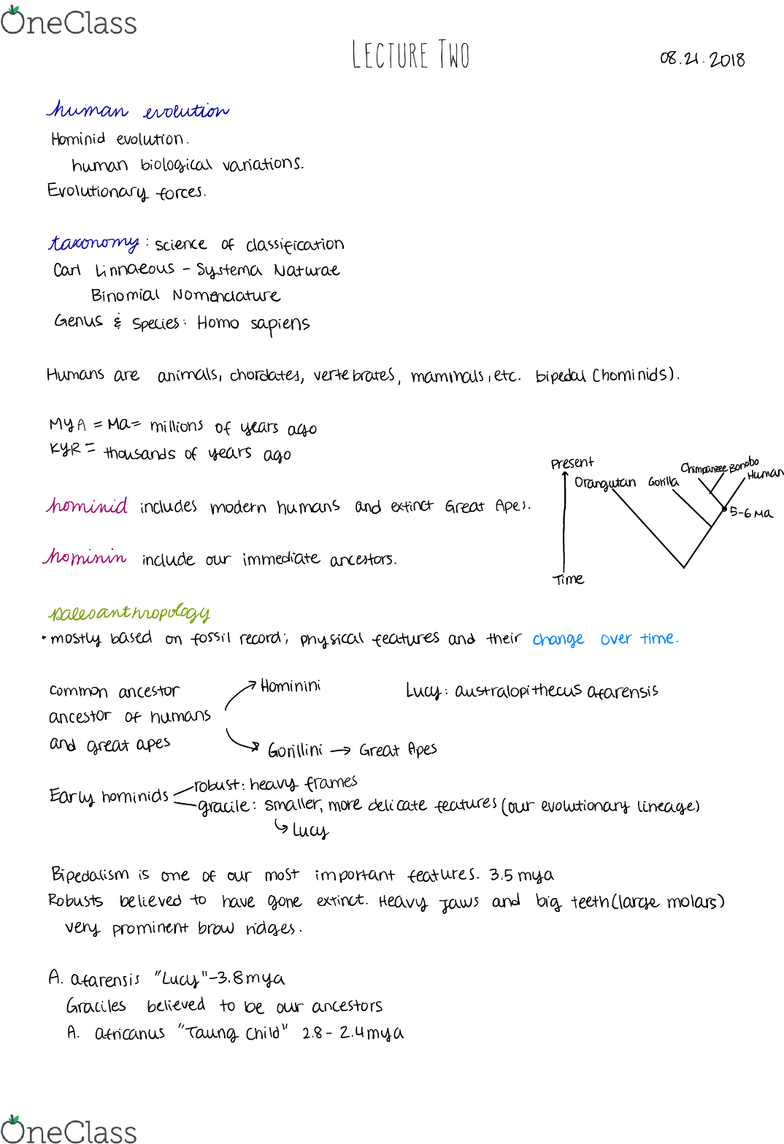 OneClass
LECTURE TWO
08.21.2018
human evolution
Hominid evolution.
human biological variations.
Evolutionary forces.
taxonomy: science of classification
Carl Linnaeous - Systema Naturae
Binomial Nomenclature
Genus & Species: Homo sapiens
Humans are animals, chordates, vertebrates, mammals, etc. bipedal (hominids).
MYA = Ma = millions of years ago
KYR = thousands of years ago
Present
Orangutan Gorilla Chimpanzee Bonobo Human
5-6 Ma
Time
hominid includes modern humans and extinct Great Apes.
hominin include our immediate ancestors.
paleoanthropology
• mostly based on fossil record; physical features and their change over time.
common ancestor
ancestor of humans
and great apes
Hominini
Gorillini → Great Apes
Lucy: australopithecus afarensis
Early hominids
robust: heavy frames
gracile: smaller, more delicate features (our evolutionary lineage)
↳ Lucy
Bipedalism is one of our most important features. 3.5 mya
Robusts believed to have gone extinct. Heavy jaws and big teeth (large molars)
very prominent brow ridges.
A. afarensis "Lucy" - 3.8 mya
Graciles believed to be our ancestors
A. africanus "Taung Child" 2.8 - 2.4 mya
OneClass